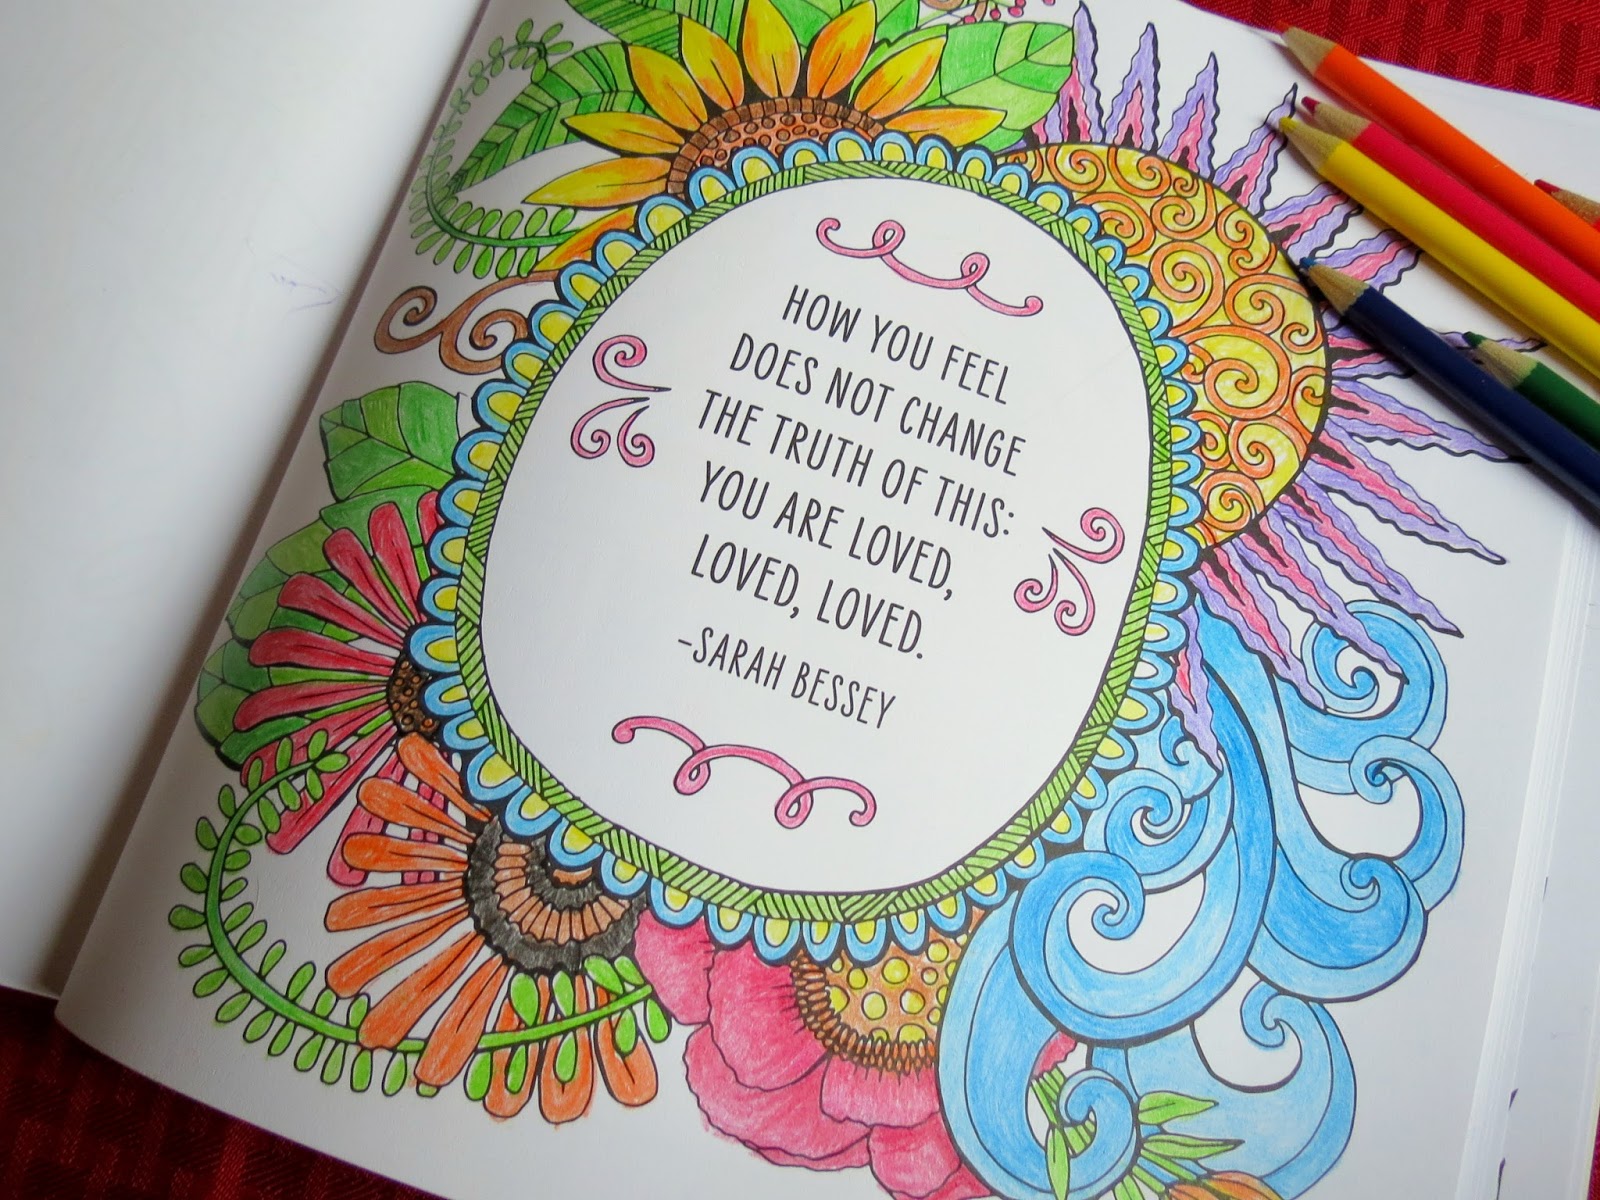 HOW YOU FEEL
DOES NOT CHANGE
THE TRUTH OF THIS:
YOU ARE LOVED,
LOVED, LOVED.
-SARAH BESSEY